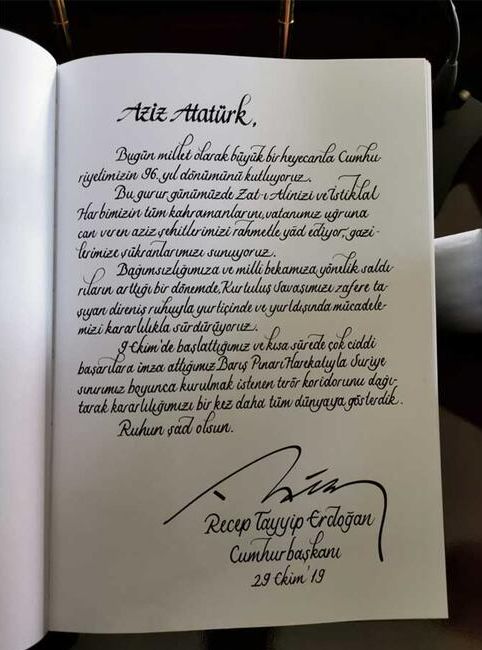 Aziz Atatürk,
Bugün millet olarak büyük bir heyecanla Cumhu
riyetimizin 96. yıl dönümünü kutluyoruz.
Bu gurur günümüzde Zat-ı Alinizi ve İstiklal
Harbimizin tüm kahramanlarını, vatanımız uğruna
can veren aziz şehitlerimizi rahmetle yâd ediyor, gazi-
lerimize şükranlarımızı sunuyoruz.
Bağımsızlığımıza ve milli bekamıza yönelik saldı-
rıların arttığı bir dönemde, Kurtuluş Savaşımızı zafere ta-
şıyan direniş ruhuyla yurtiçinde ve yurtdışında mücadele-
mizi kararlılıkla sürdürüyoruz.
9 Ekim'de başlattığımız ve kısa sürede çok ciddi
başarılara imza attığımız Barış Pınarı Harekatıyla Suriye
sınırımız boyunca kurulmak istenen terör koridorunu dağı-
tarak kararlılığımızı bir kez daha tüm dünyaya gösterdik.
Ruhun şad olsun.
Recep Tayyip Erdoğan
Cumhurbaşkanı
29 Ekim '19